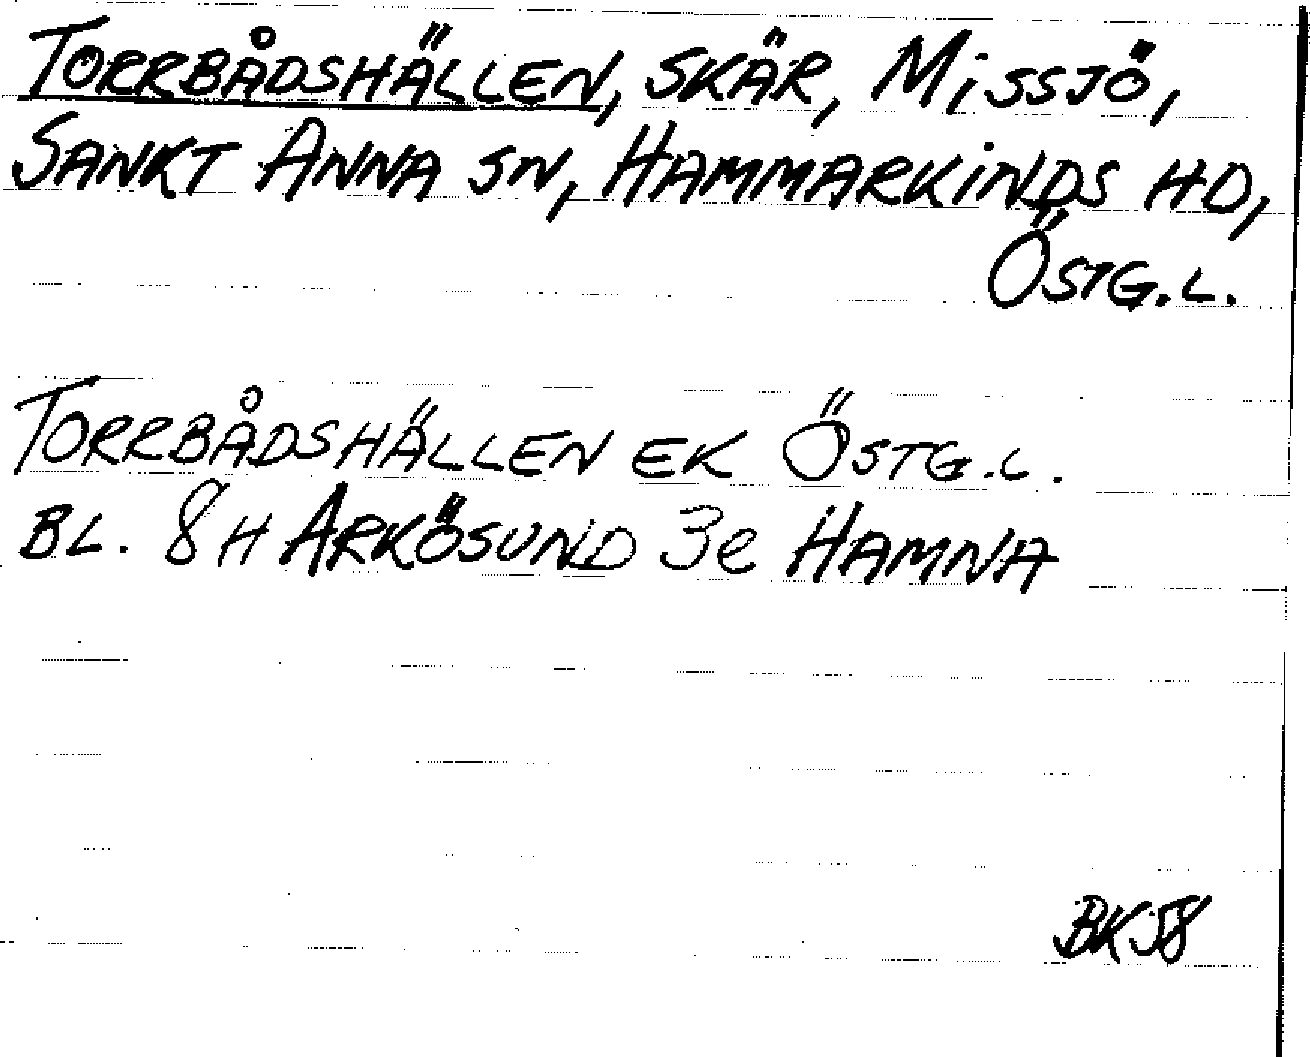 TORRBÅDSHÄLLEN, SKÄR, MISSJÖ,
SANKT ANNA SN, HAMMARKINDS HD,
ÖSTG.L.
TORRBÅDSHÄLLEN EK ÖSTG.L.
BL. 8H ARKÖSUND 3e HAMNA
BK58